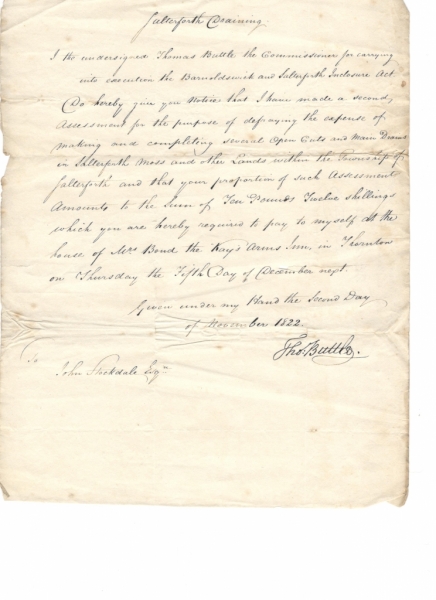 Salterforth Draining.
I the undersigned Thomas Buttle the Commissioner for carrying
into execution the Barnoldswick and Salterforth Inclosure Act
Do hereby give you Notice that I have made a second
Assessment for the purpose of defraying the expense of
making and completing several Open Cuts and Main Drains
in Salterforth Moss and other Lands within the Township of
Salterforth and that your proportion of such Assessment
Amounts to the Sum of Ten Pounds Twelve shillings
which you are hereby required to pay to myself at the
house of Mrs Bond the Kays Arms Inn, in Thornton
on Thursday the Fifth Day of December next.
Given under my Hand the Second Day
of November 1822.
Thos. Buttle.
To
John Stockdale Esqre